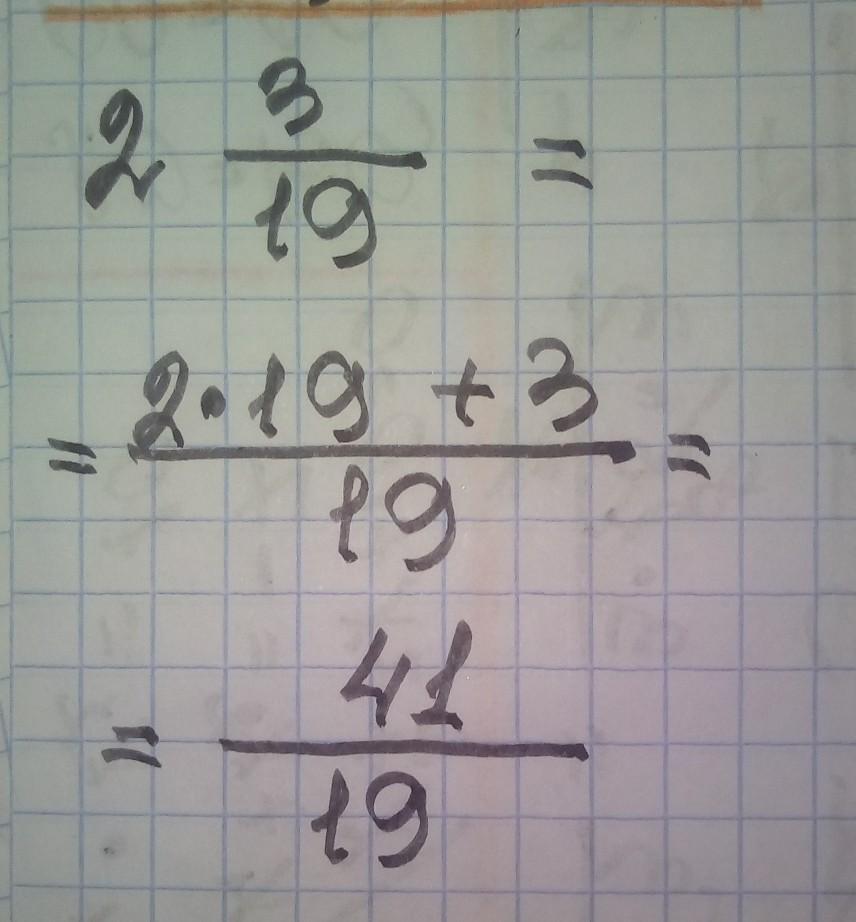 2 3/19 =
= (2·19 + 3)/19 =
= 41/19